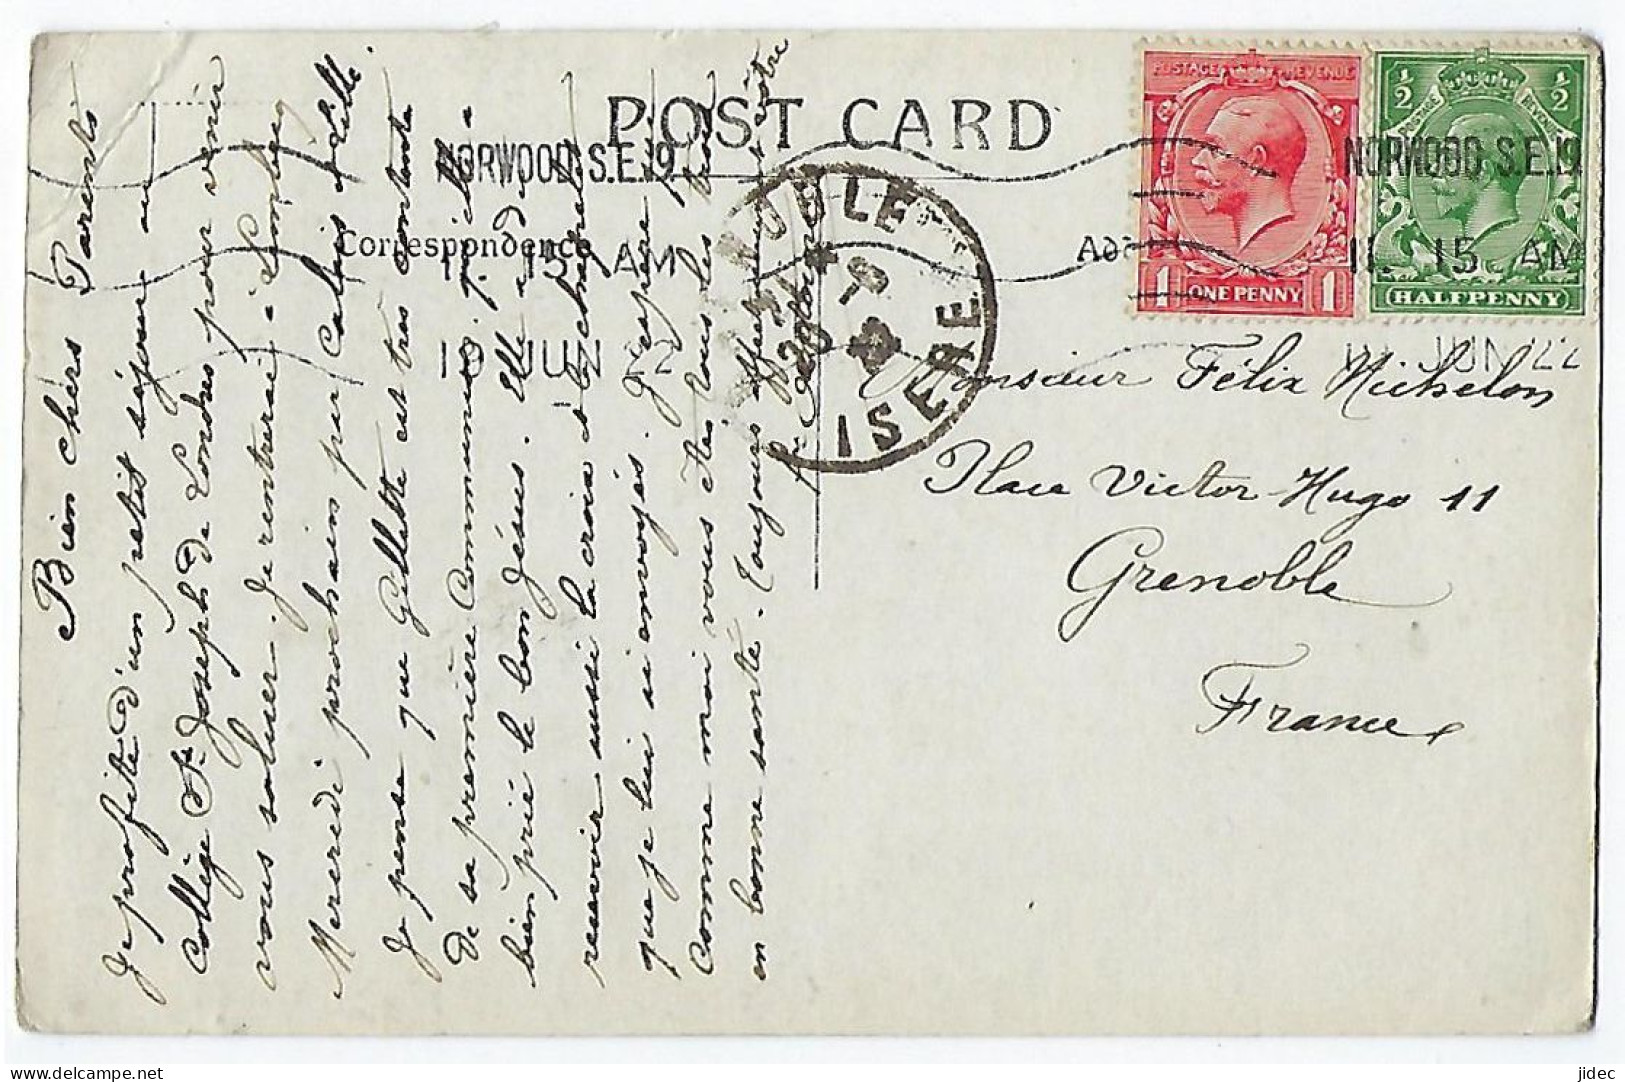 POST CARD
Correspondence
NORWOOD S.E.19
11. 15 AM
10 JUN 22
NORWOOD S.E.19
11. 15 AM
10 JUN 22
POSTAGE REVENUE
1 ONE PENNY 1
½ ½
POSTAGE REVENUE
HALFPENNY
ISERE
Bien chers Parents
Je profite d'un petit séjour au
Collège St Joseph de Londres pour venir
vous saluer. Je rentrerai à
Mercredi prochain par Calais & Lille.
Je pense que Gillette est très contente
de sa première Communion,
bien prié le bon Jésus. Elle a dû
recevoir aussi la croix et le chapelet
que je lui ai envoyés. J'espère
comme moi vous êtes tous les trois
en bonne santé. Toujours affectueusement votre
Monsieur Félix Michelon
Place Victor Hugo 11
Grenoble
France
jidec